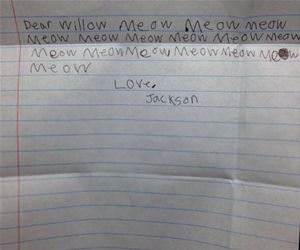 Dear Willow Meow Meow meow
Meow Meow Meow Meow Meow Meow
Meow Meow Meow Meow Meow Meow
Meow
Love,
Jackson